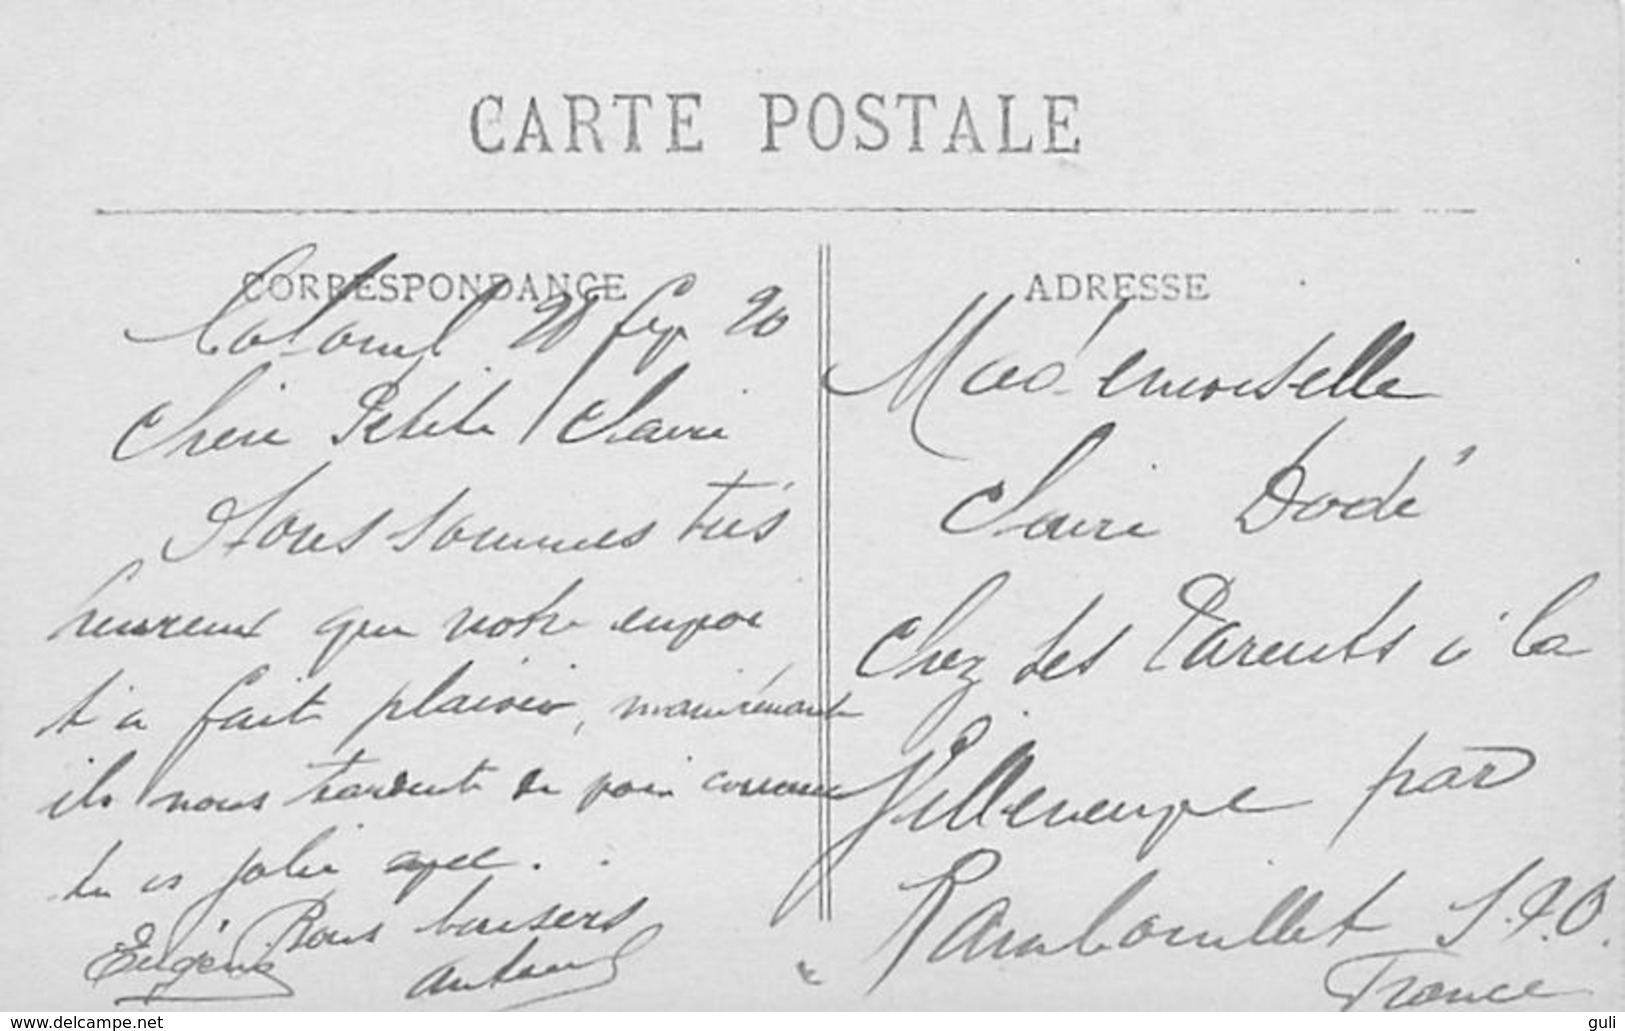 CARTE POSTALE
CORRESPONDANCE
20
Chère Petite Claire
Nous sommes très
heureux que notre envoi
t'a fait plaisir, maintenant
ils nous tardent de voir comme
tu es jolie avec.
Bons baisers
Eugénie Antoine
ADRESSE
Mademoiselle
Claire Dodé
Chez ses Parents à la
Villeneuve par
Rambouillet S.&O.
France
www.delcampe.net
guli